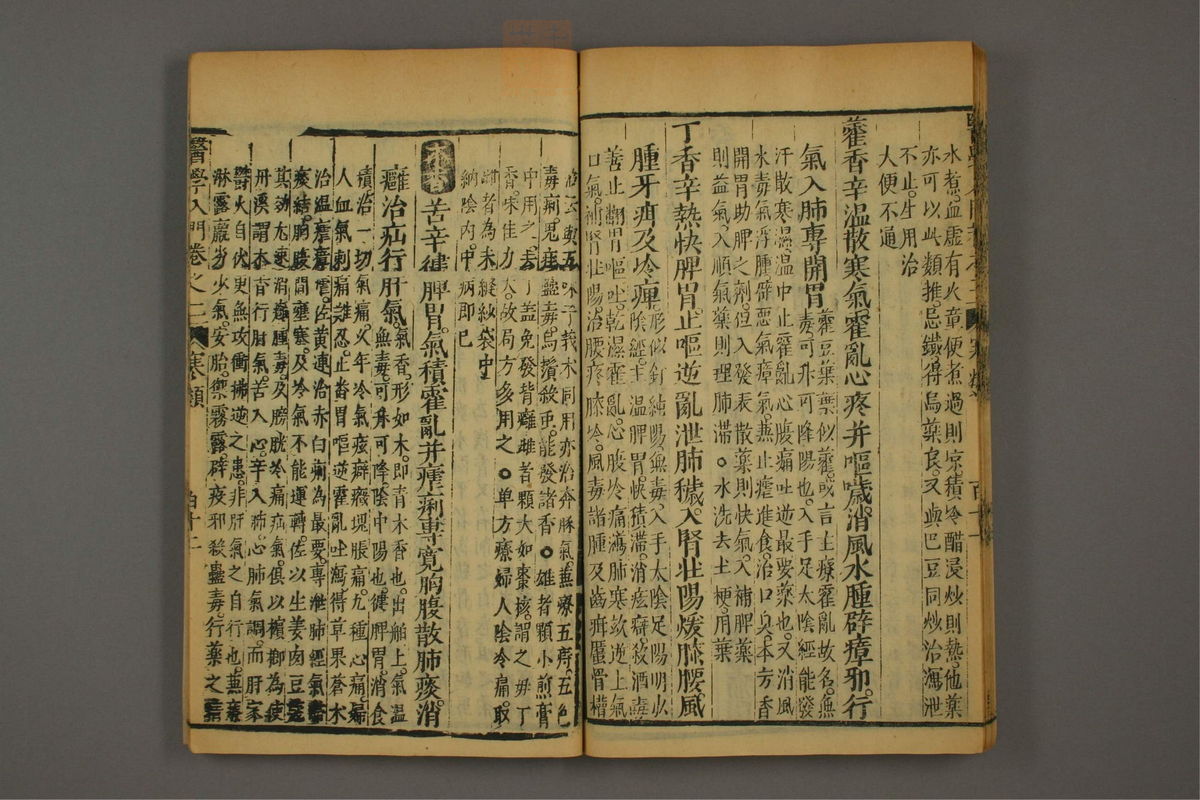 水煮。血虛有火童便煮過則凉積冷醋浸炒則熱。他藥
亦可以此類推。忌鐵得烏藥良。又與巴豆同炒治瀉泄
不止。生用治
大便不通
藿香辛溫散寒氣霍亂心疼并嘔噦消風水腫辟瘴邪。行
氣入肺專開胃藿豆葉葉似藿。或言主療霍亂故名。無
毒。可升可降陽也。入手足太陰經能發
汗散寒濕。溫中止霍亂心腹痛吐逆最要藥也。又消風
水毒氣浮腫辟惡氣瘴氣。兼止瘧進食。治口臭。本方香
開胃助脾之劑。但入發表散藥則快氣。入補脾藥
則益氣。入順氣藥則理肺滯。○水洗去土梗。用葉
丁香辛熱快脾胃止嘔逆亂泄肺穢。入腎壯陽煖膝腰風
腫牙疳及冷痺形似釘。純陽無毒。入手太陰足陽明少
陰經。主溫脾胃快積滯。消痃癖殺酒毒
善止翻胃嘔吐。乾濕霍亂。心腹冷痛瀉。肺寒欬逆上氣
口氣。補腎壯陽治腰疼膝冷。風毒諸腫及齒疳䘌骨槽
五味子莪朮同用亦治奔豚氣。兼療五痔。五色
毒痢鬼疰蠱毒。烏鬚殺䖝。能發諸香。○雄者顆小煎膏
中用之。去丁蓋免發背癰。雌者顆大如棗核。謂之母丁
香。味佳力大。故局方多用之。○单方療婦人陰冷痛。取
縫紗袋中
納陰內。中病即已
木香苦辛健脾胃。氣積霍亂并瘧痢專寬胸腹散肺痰。消
癰治疝行肝氣。氣香。形如木。即青木香也。出舶上氣溫
無毒。可升可降陰中陽也。健脾胃。消食
積治一切氣痛。火年冷氣痃癖癥塊脹痛。九種心痛婦
人血氣刺痛難忍。止畨胃嘔逆霍亂吐瀉得草果蒼朮
治溫瘧瘴瘧。佐黃連治赤白痢為最要。專泄肺經氣
痰結。胸腹間壅塞。及冷氣不能運轉。佐以生姜肉豆蔻
其効尤速。消癰腫毒及膀胱冷痛疝氣。俱以檳榔為使
丹溪謂木香行肝氣苦入心。辛入肺。心肺氣調。而肝家
鬱火自伏更無攻衝拂逆之患。非肝氣之自行也。兼療
淋露羸劣少氣。安胎。禦霧露。辟疫邪殺蠱毒。行藥之
醫學入門卷之二 寒類 百十二